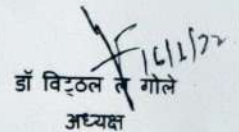 16/1/22
डॉ विट्ठल ल गोले
अध्यक्ष